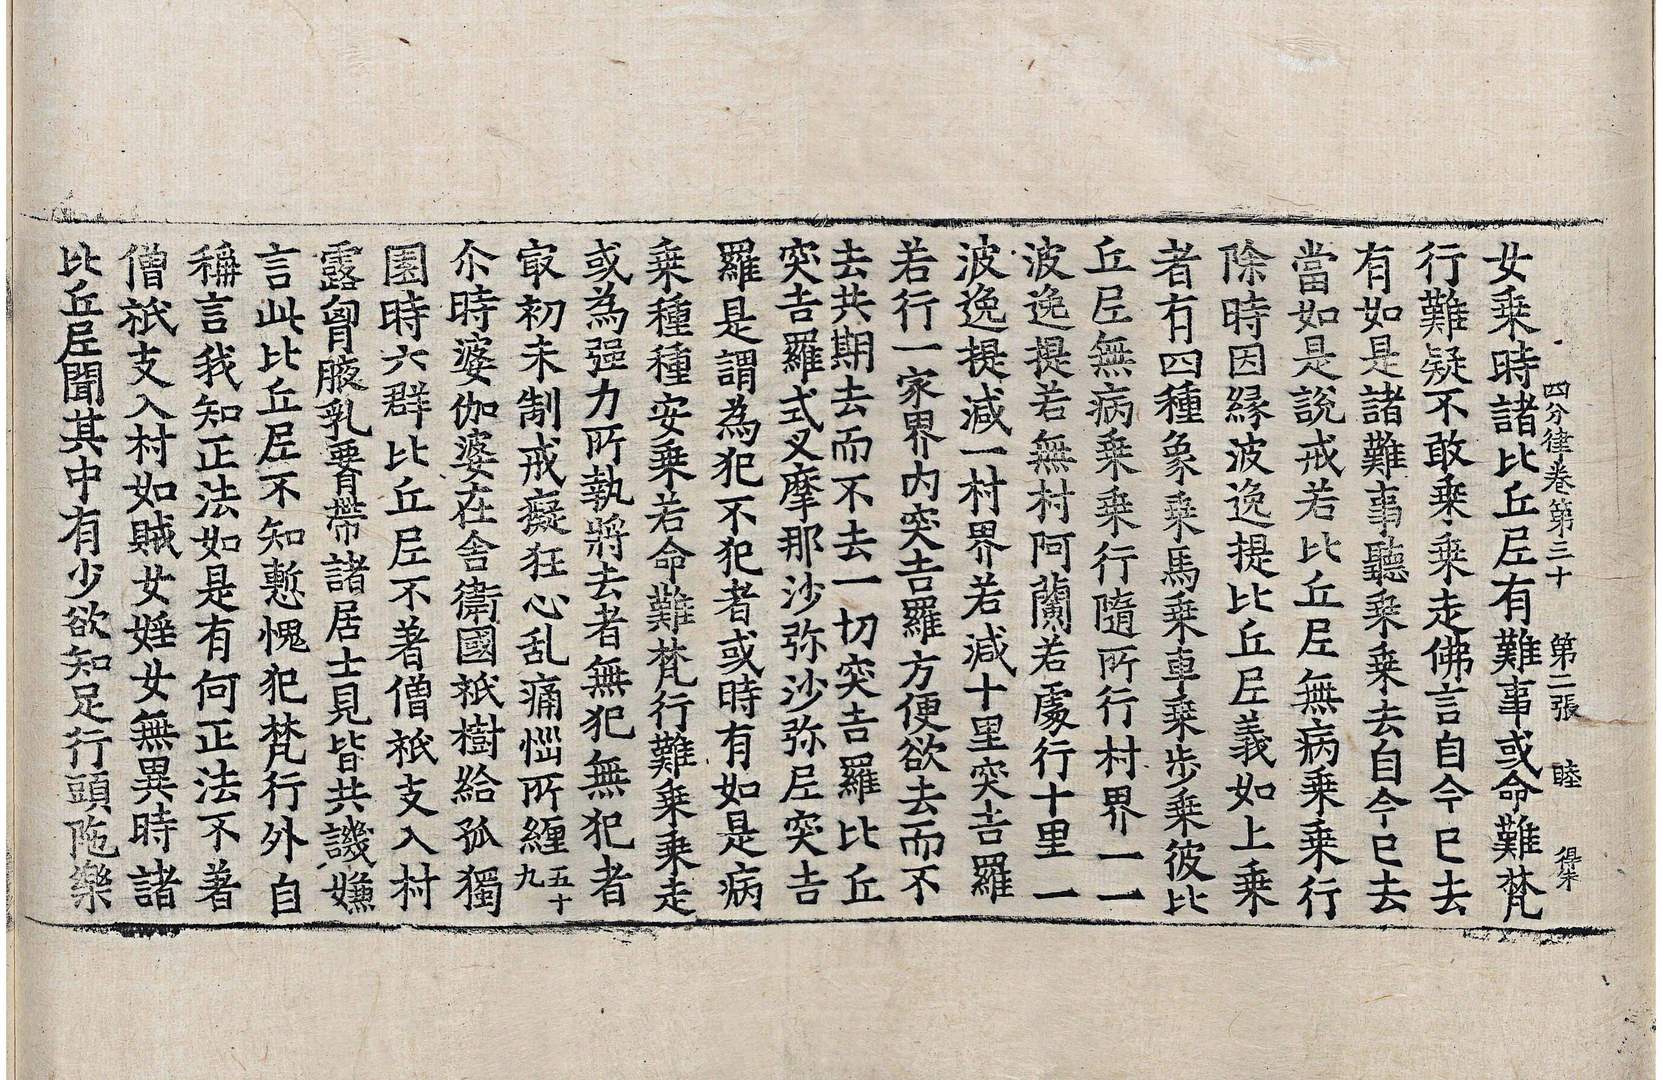 四分律卷第三十　第二張　睦　得柒
女乘時諸比丘尼有難事或命難梵
行難疑不敢乘乘走佛言自今已去
有如是諸難事聽乘乘去自今已去
當如是說戒若比丘尼無病乘乘行
除時因緣波逸提比丘尼義如上乘
者有四種象乘馬乘車乘步乘彼比
丘尼無病乘乘行隨所行村界一一
波逸提若無村阿蘭若處行十里一
波逸提減一村界若減十里突吉羅
若行一家界內突吉羅方便欲去而不
去共期去而不去一切突吉羅比丘
突吉羅式叉摩那沙弥沙弥尼突吉
羅是謂為犯不犯者或時有如是病
乘種種安乘若命難梵行難乘乘走
或為强力所執將去者無犯無犯者
㝡初未制戒癡狂心乱痛惱所纏五十九
尒時婆伽婆在舍衞國祇樹給孤獨
園時六群比丘尼不著僧祇支入村
露胷腋乳𦝫帶諸居士見皆共譏嫌
言此比丘尼不知慙愧犯梵行外自
稱言我知正法如是有何正法不著
僧祇支入村如賊女婬女無異時諸
比丘尼聞其中有少欲知足行頭陁樂